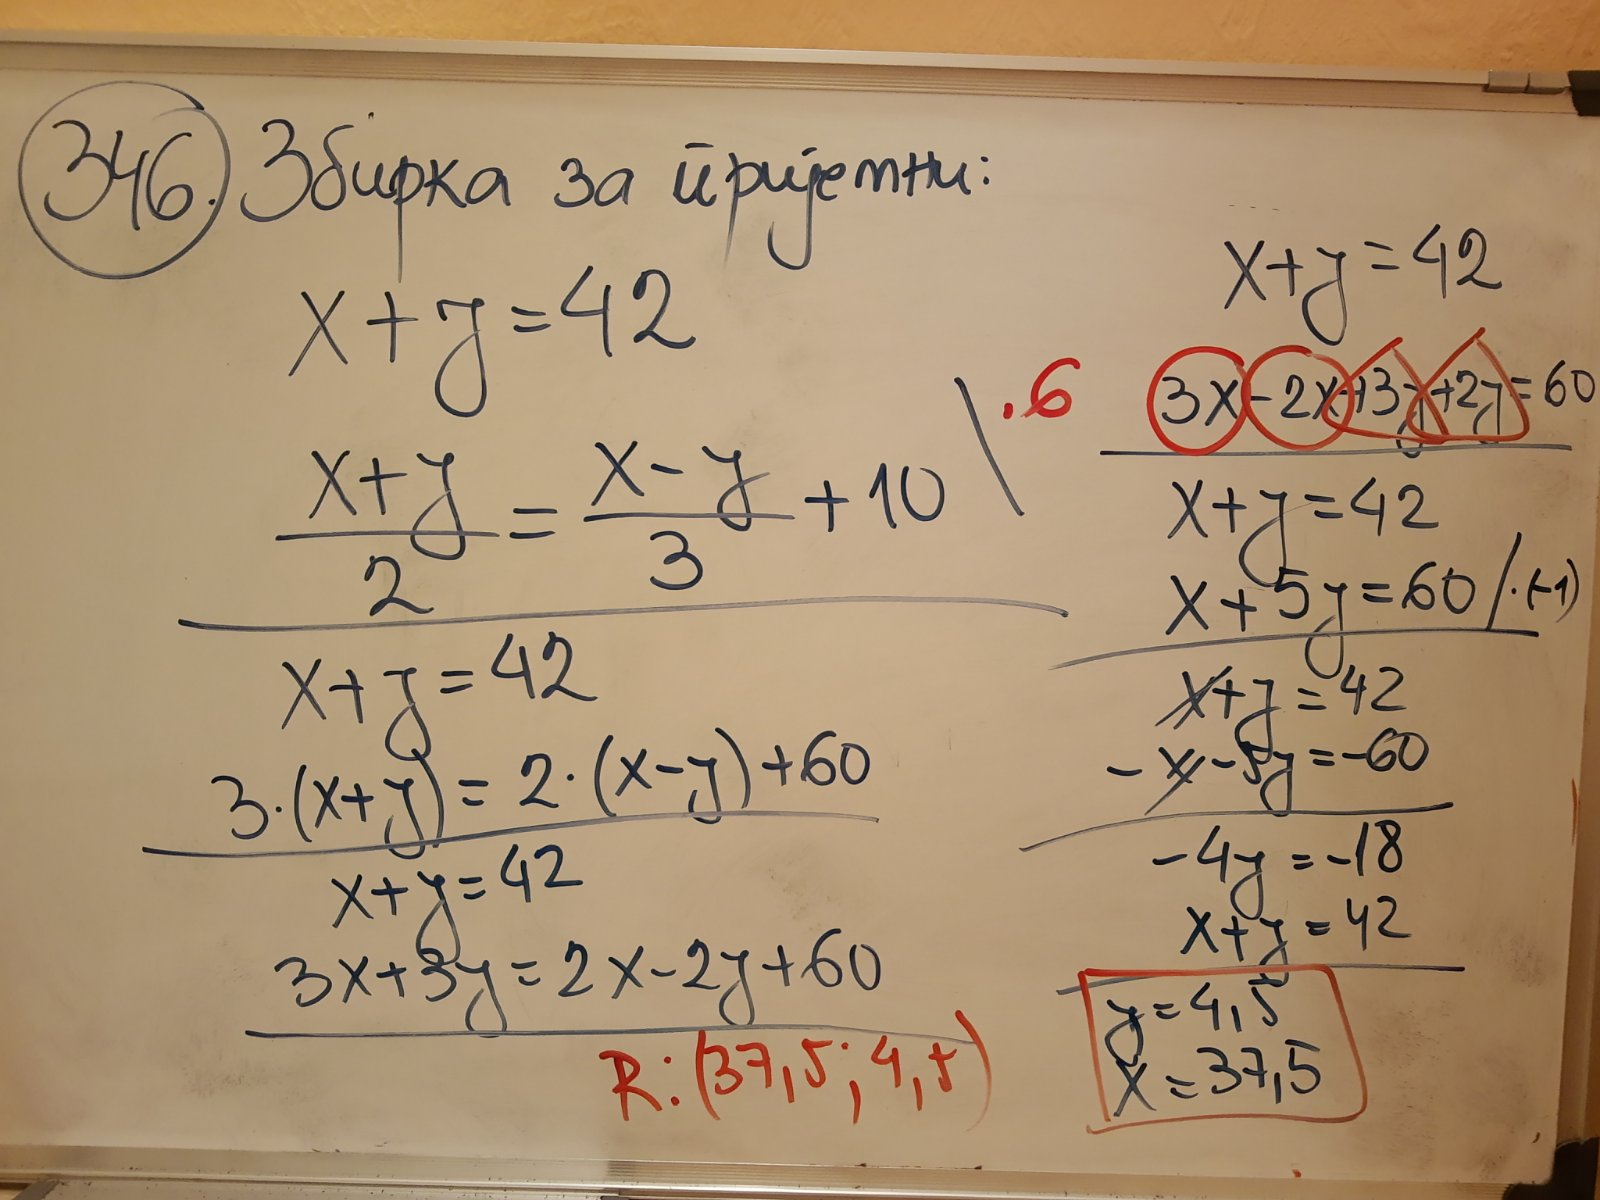 346. Збирка за пријемни:
x+y=42
x+y/2 = x-y/3 +10 \ .6
x+y=42
3·(x+y)=2·(x-y)+60
x+y=42
3x+3y=2x-2y+60
R:(37,5;4,5)
x+y=42
3x-2x+3y+2y=60
x+y=42
x+5y=60 /·(-1)
x+y=42
-x-5y=-60
-4y=-18
x+y=42
y=4,5
x=37,5